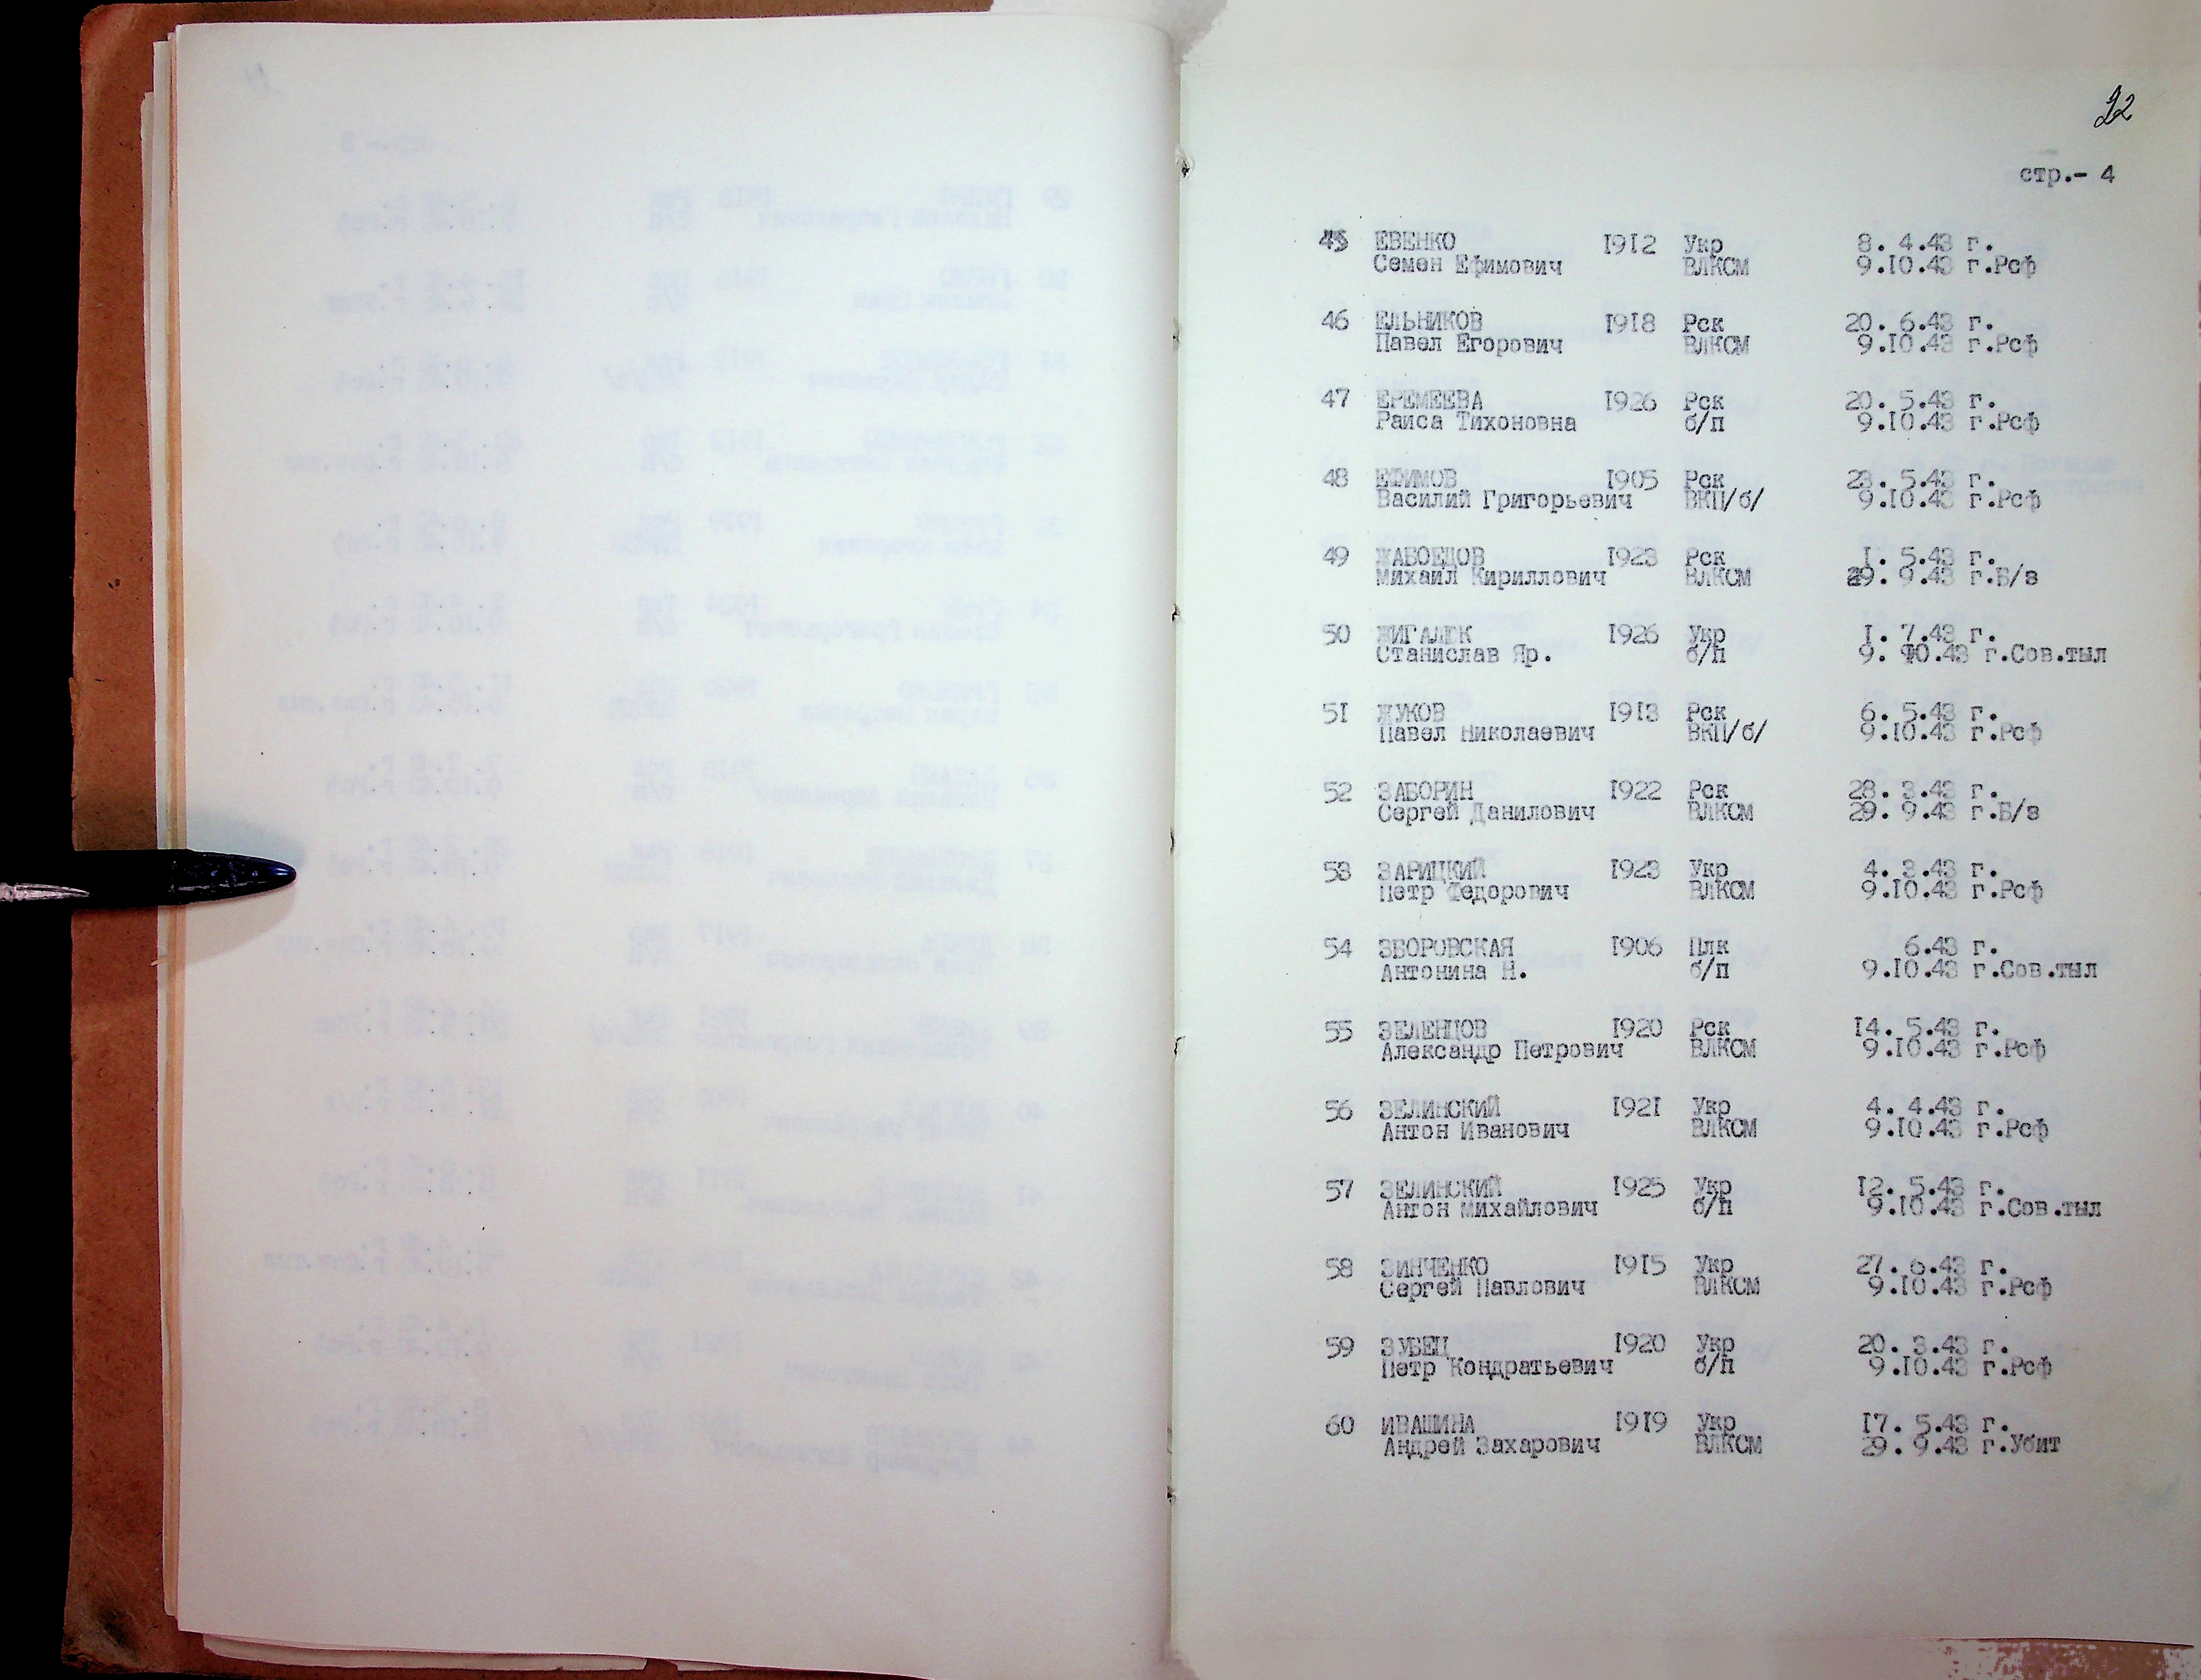 22
стр.- 4
45 ЕВЕНКО 1912 Укр 8. 4.43 г.
Семен Ефимович ВЛКСМ 9.10.43 г.Рсф
46 ЕЛЬНИКОВ 1918 Рск 20. 6.43 г.
Павел Егорович ВЛКСМ 9.10.43 г.Рсф
47 ЕРЕМЕЕВА 1926 Рск 20. 5.43 г.
Раиса Тихоновна б/п 9.10.43 г.Рсф
48 ЕФИМОВ 1905 Рск 23. 5.43 г.
Василий Григорьевич ВКП/б/ 9.10.43 г.Рсф
49 ЖАБОЕДОВ 1923 Рск 1. 5.43 г.
Михаил Кириллович ВЛКСМ 29. 9.43 г.Б/з
50 ЖИГАЛЕК 1926 Укр 1. 7.43 г.
Станислав Яр. б/п 9. 10.43 г.Сов.тыл
51 ЖУКОВ 1913 Рск 6. 5.43 г.
Павел Николаевич ВКП/б/ 9.10.43 г.Рсф
52 ЗАБОРИН 1922 Рск 28. 3.43 г.
Сергей Данилович ВЛКСМ 29. 9.43 г.Б/з
53 ЗАРИЦКИЙ 1923 Укр 4. 3.43 г.
Петр Федорович ВЛКСМ 9.10.43 г.Рсф
54 ЗБОРОВСКАЯ 1906 Плк 6.43 г.
Антонина Н. б/п 9.10.43 г.Сов.тыл
55 ЗЕЛЕНЦОВ 1920 Рск 14. 5.43 г.
Александр Петрович ВЛКСМ 9.10.43 г.Рсф
56 ЗЕЛИНСКИЙ 1921 Укр 4. 4.43 г.
Антон Иванович ВЛКСМ 9.10.43 г.Рсф
57 ЗЕЛИНСКИЙ 1925 Укр 12. 5.43 г.
Антон Михайлович б/п 9.10.43 г.Сов.тыл
58 ЗИНЧЕНКО 1915 Укр 27. 6.43 г.
Сергей Павлович ВЛКСМ 9.10.43 г.Рсф
59 ЗУБЕЦ 1920 Укр 20. 3.43 г.
Петр Кондратьевич б/п 9.10.43 г.Рсф
60 ИВАШИНА 1919 Укр 17. 5.43 г.
Андрей Захарович ВЛКСМ 29. 9.43 г.Убит